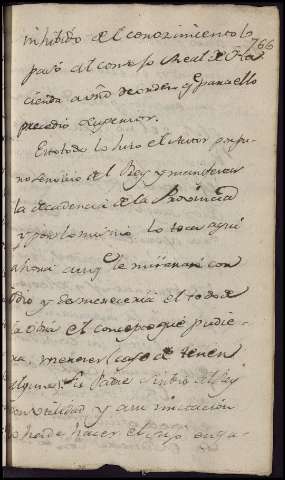 766
inhibido del conozimiento lo
pasó al consejo Real de Ha
cienda a vño de orden q̃ para ello
precedió Superior.
Esto todo lo hizo el Autor por pu
no servicio del Rey y mantener
la decadencia de la Provincia
y por lo mismo lo toca aqui
ahora aunq̃ le miraran con
odio y desmereceria el todo de
la Obra el concepto que pudie
ra merecer (caso de tener
alguno). Su Padre sirvio al Rey
con utilidad y a su imitacion
lo ha de hacer el hijo en